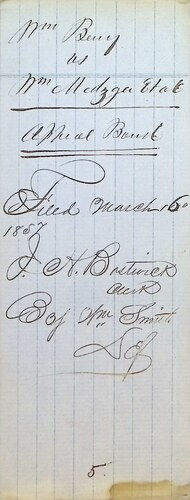 Wm Berry
vs
Wm Metzger Et al
Appeal Bond
Filed March 16
1857
J. A. Bostwick
Clerk
By Wm Smith
5.